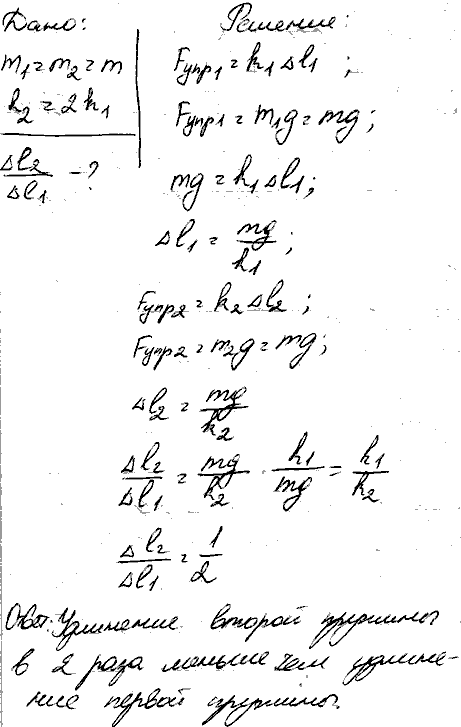 Дано:
m₁ = m₂ = m
k₂ = 2k₁
Δl₂/Δl₁ - ?
Решение:
Fупр1 = k₁Δl₁;
Fупр1 = m₁g = mg;
mg = k₁Δl₁;
Δl₁ = mg/k₁;
Fупр2 = k₂Δl₂;
Fупр2 = m₂g = mg;
Δl₂ = mg/k₂
Δl₂/Δl₁ = mg/k₂ · k₁/mg = k₁/k₂
Δl₂/Δl₁ = 1/2
Ответ: Удлинение второй пружины
в 2 раза меньше чем удлине-
ние первой пружины.